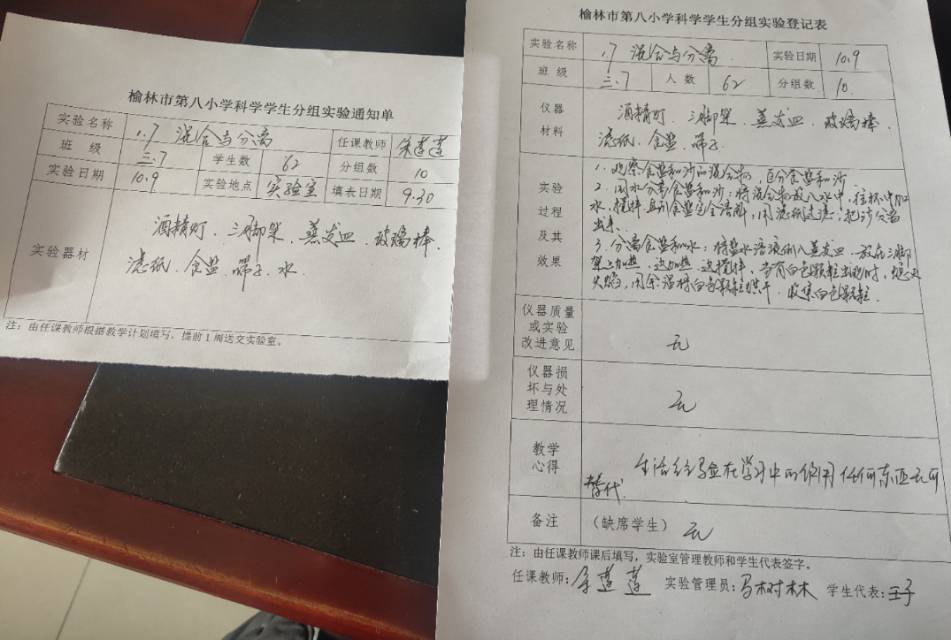 榆林市第八小学科学学生分组实验通知单
实验名称 1.7 混合与分离 任课教师 朱莲莲
班 级 三.7 学生数 62 分组数 10
实验日期 10.9 实验地点 实验室 填表日期 9.30
实验器材
酒精灯、三脚架、蒸发皿、玻璃棒、
滤纸、食盐、筛子、水
注：由任课教师根据教学计划填写，提前1周送交实验室。
榆林市第八小学科学学生分组实验登记表
实验名称 1.7 混合与分离 实验日期 10.9
班 级 三.7 人 数 62 分组数 10
仪器
材料
酒精灯、三脚架、蒸发皿、玻璃棒、
滤纸、食盐、筛子
实验
过程
及其
效果
1.观察食盐和沙的混合物，区分食盐和沙
2.用水分离食盐和沙：将混合物放入水中，往杯中加
水，搅拌直到食盐完全溶解，用滤纸过滤，把沙分离
出来。
3.分离食盐和水：将盐水溶液倒入蒸发皿，放在三脚
架上加热，边加热，边搅拌，当有白色颗粒出现时，熄灭
火焰，用余温将白色颗粒烘干，收集白色颗粒.
仪器质量
或实验
改进意见
无
仪器损
坏与处
理情况
无
教学
心得
生活经验在学习中的作用任何东西无可
替代.
备注 （缺席学生） 无
注：由任课教师课后填写，实验室管理教师和学生代表签字。
任课教师：朱莲莲 实验管理员：马树林 学生代表：